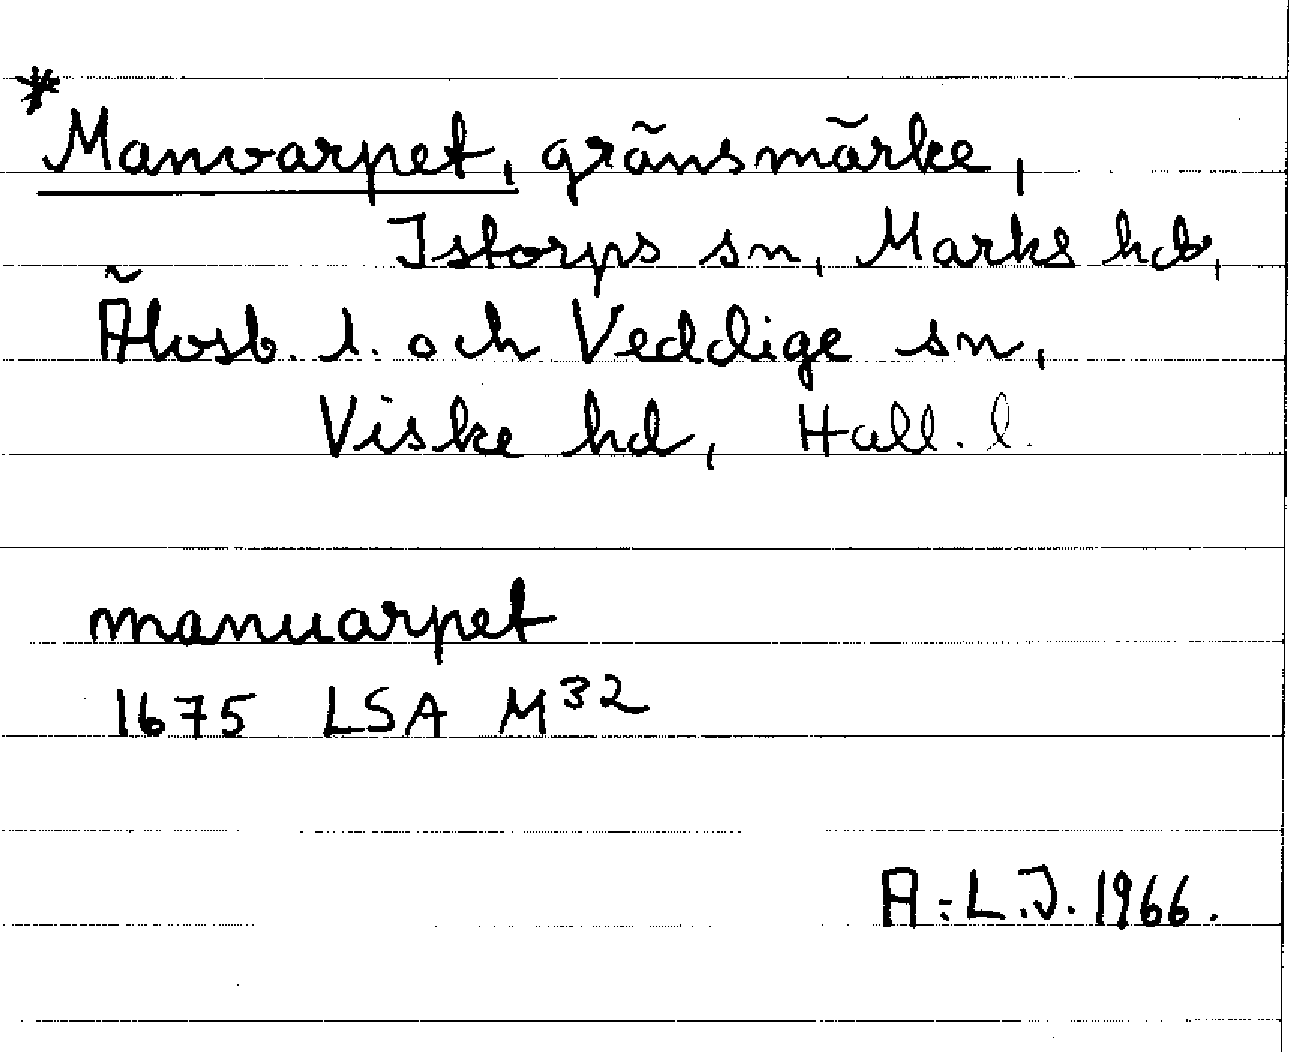 *Manvarpet, gränsmärke,
Istorps sn, Marks hd,
Älvsb. l. och Veddige sn,
Viske hd, Hall. l.
manuarpet
1675 LSA M32
A.L.J. 1966.